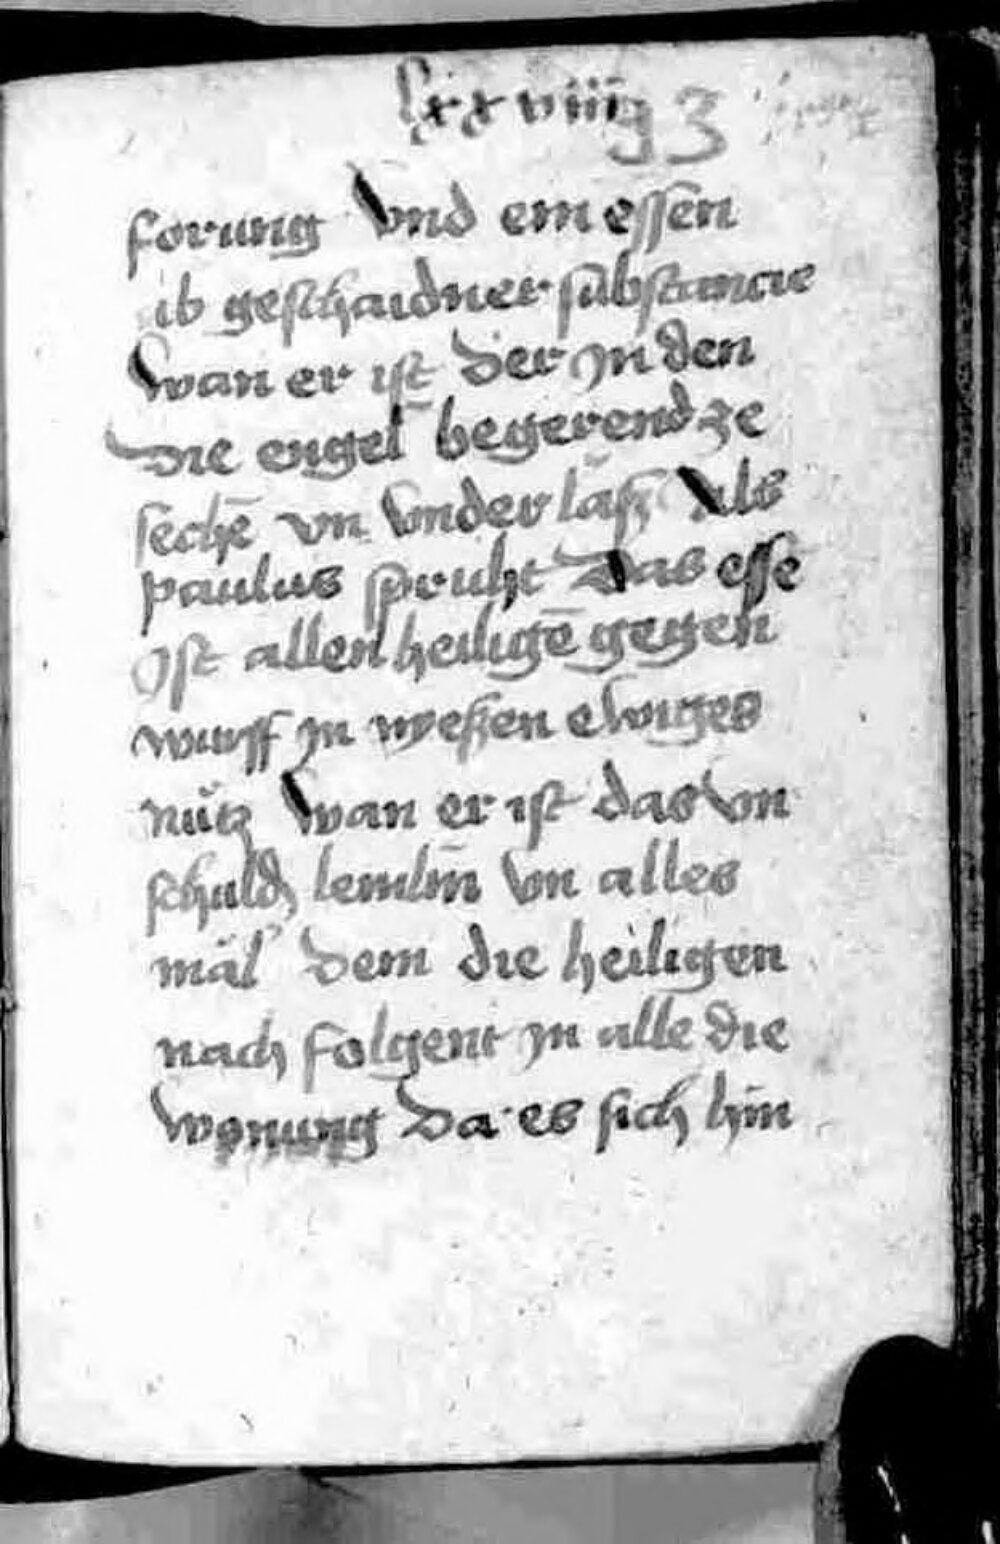 lxxviiij 3
forung Vnd ein essen
ab geschaidner substancie
Wan er ist der jn den
die engel begerend ze
sechē vn vnder laſz Als
paulus spricht Das esse
jst allen heiligē gegen
wurff jn weſzen ewiges
nütz Wan er ist das vn
schuldig lemlin vn alles
mǎl dem die heiligen
nach folgent jn alle die
Wonung Da es sich hin